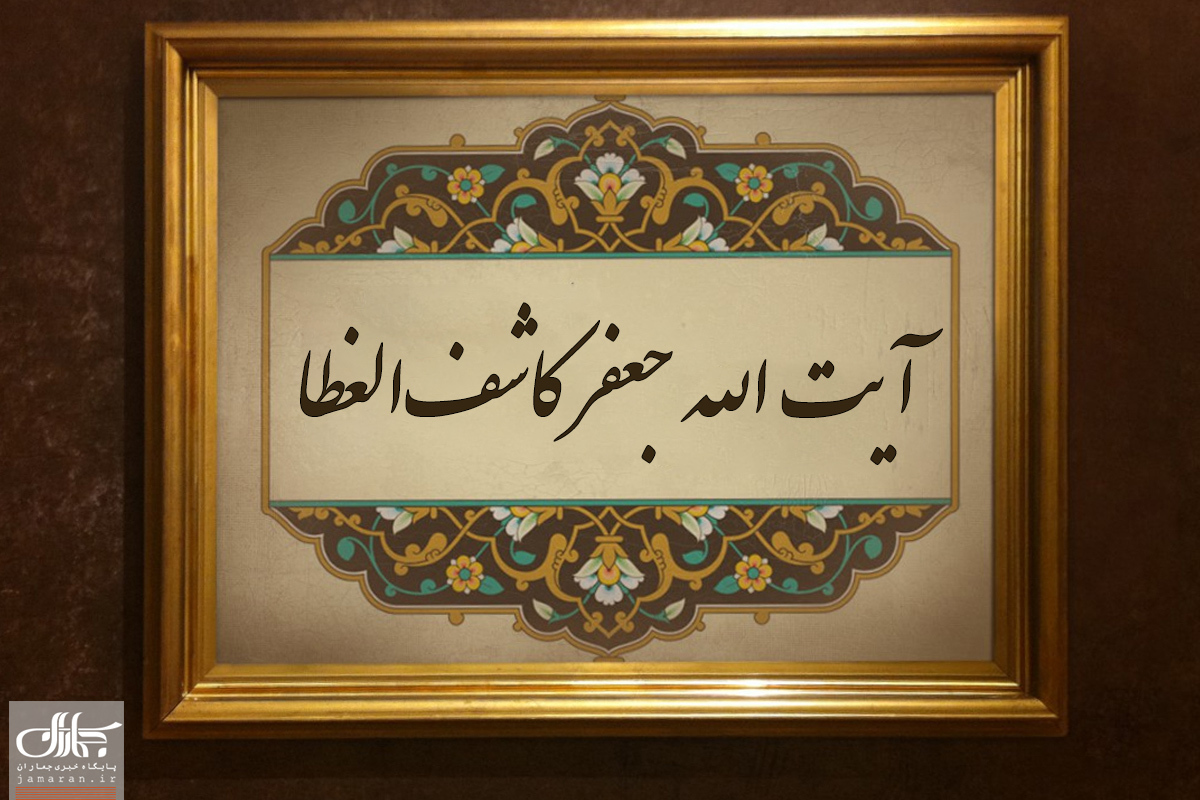 آیت الله جعفر کاشف الغطا
جماران
پایگاه خبری جماران
jamaran.ir